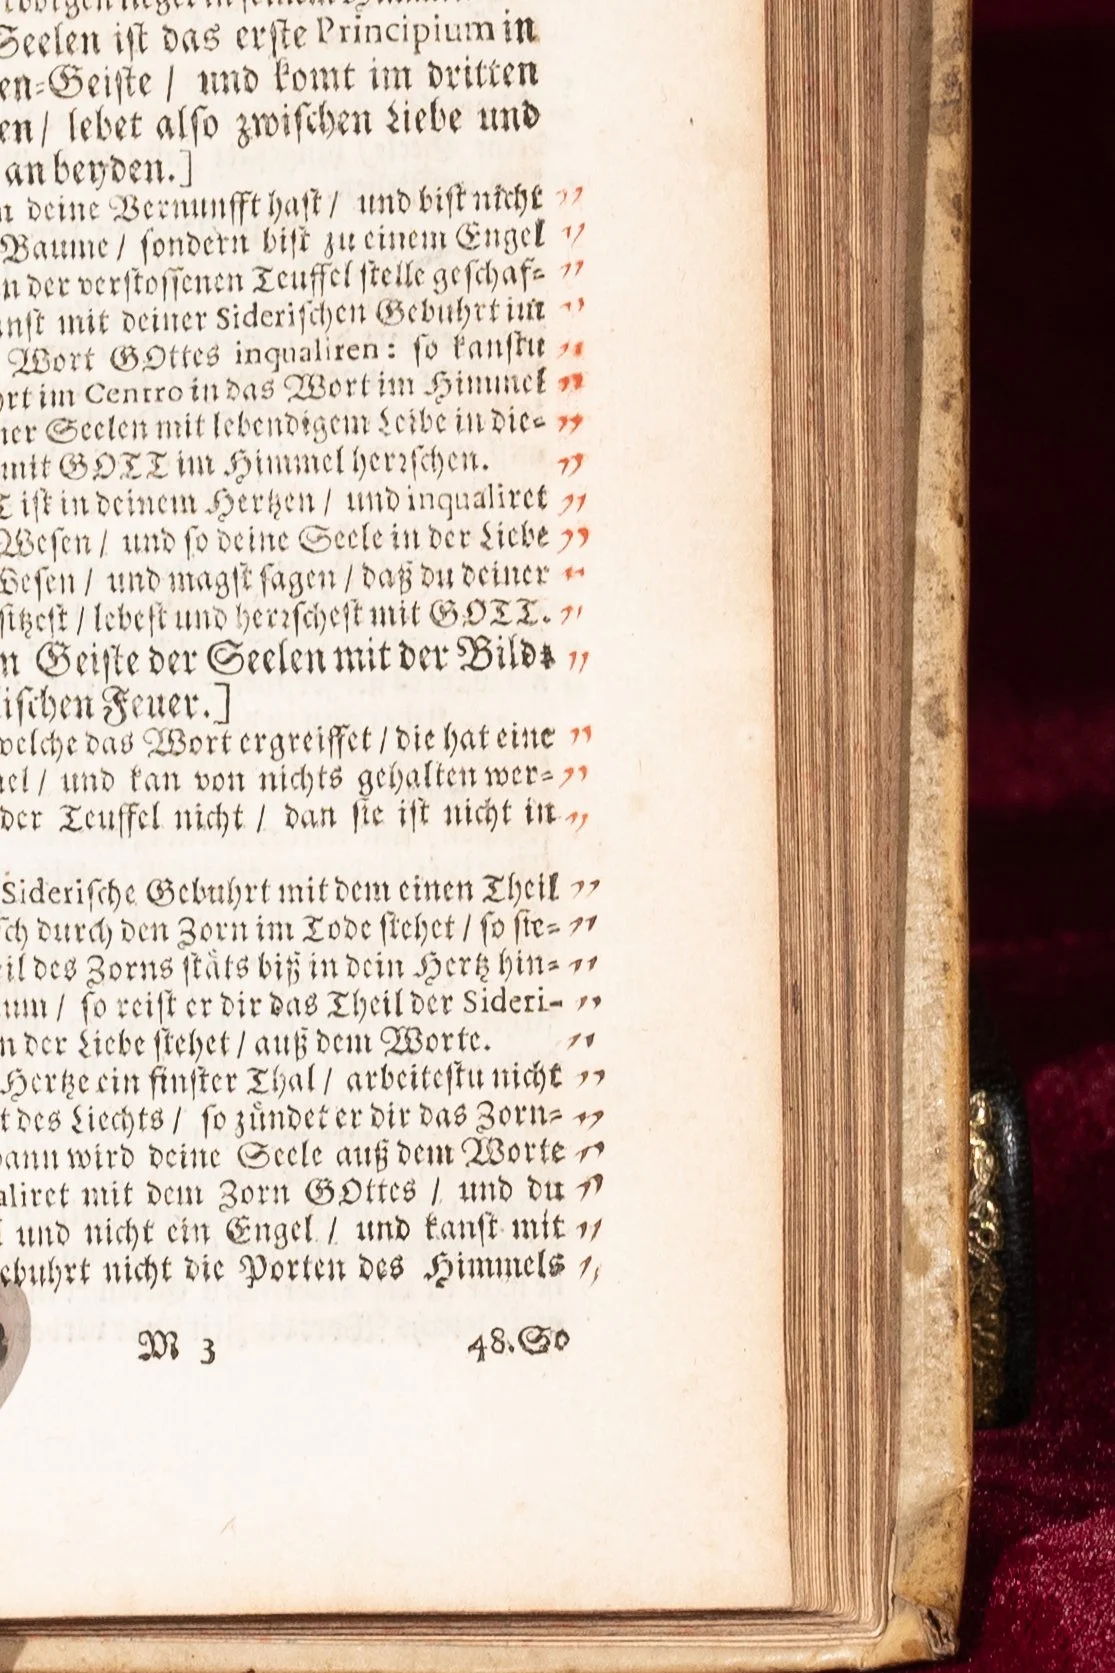 Seelen ist das erste Principium in
en-Geiste / und komt im dritten
en/ lebet also zwischen Liebe und
an beyden.]
deine Vernunfft hast / und bist nicht ”
Baume / sondern bist zu einem Engel ”
n der verstossenen Teuffel stelle geschaf- ”
nst mit deiner Siderischen Gebuhrt im ”
Wort GOttes inqualiren: so kanstu ”
rt im Centro in das Wort im Himmel ”
ner Seelen mit lebendigem Leibe in die- ”
mit GOTT im Himmel herrschen. ”
T ist in deinem Hertzen / und inqualiret ”
Wesen / und so deine Seele in der Liebe ”
Wesen / und magst sagen / daß du deiner ”
sitzest / lebest und herrschest mit GOTT. ”
n Geiste der Seelen mit der Bild- ”
ischen Feuer.]
welche das Wort ergreiffet / die hat eine ”
el / und kan von nichts gehalten wer- ”
der Teuffel nicht / dan sie ist nicht in ”
Siderische Gebuhrt mit dem einen Theil ”
sch durch den Zorn im Tode stehet / so sie- ”
eil des Zorns stäts biß in dein Hertz hin- ”
um / so reist er dir das Theil der Sideri- ”
n der Liebe stehet / auß dem Worte. ”
Hertze ein finster Thal / arbeitestu nicht ”
t des Liechts / so zündet er dir das Zorn- ”
dann wird deine Seele auß dem Worte ”
aliret mit dem Zorn GOttes / und du ”
und nicht ein Engel / und kanst mit ”
ebuhrt nicht die Porten des Himmels ”
M 3 48. So